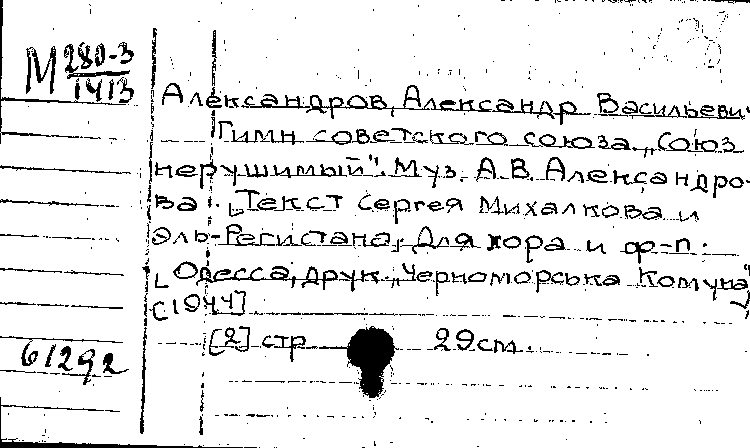 М 280-3
1413
Александров, Александр Васильеви
Гимн советского союза. „Союз
нерушимый". Муз. А.В. Александро-
ва. [Текст Сергея Михалкова и
Эль-Регистана. Для хора и ф-п.
[Одесса, друк. „Черноморська Комуна"
[1944]
[2] стр 29см.
61292